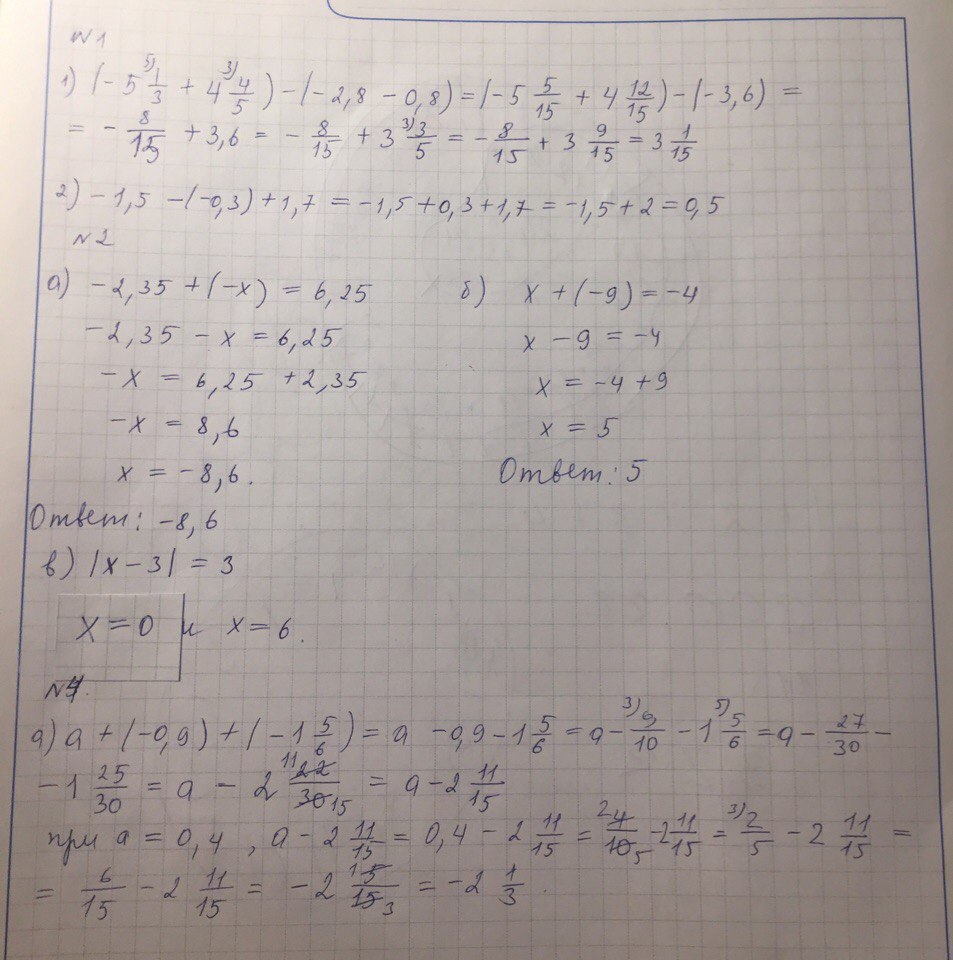 №1
1) (-5 ⁵⁾1/3 + 4 ³⁾4/5) - (-2,8 - 0,8) = (-5 5/15 + 4 12/15) - (-3,6) =
= - 8/15 + 3,6 = - 8/15 + 3 ³⁾3/5 = - 8/15 + 3 9/15 = 3 1/15
2) -1,5 -(-0,3) + 1,7 = -1,5 + 0,3 + 1,7 = -1,5 + 2 = 0,5
№2
а) -2,35 + (-x) = 6,25
-2,35 - x = 6,25
-x = 6,25 + 2,35
-x = 8,6
x = -8,6.
Ответ: -8,6
б) x + (-9) = -4
x - 9 = -4
x = -4 + 9
x = 5
Ответ: 5
в) |x - 3| = 3
x = 0 и x = 6.
№4.
а) a + (-0,9) + (-1 5/6) = a - 0,9 - 1 5/6 = a - ³⁾9/10 - 1 ⁵⁾5/6 = a - 27/30 -
- 1 25/30 = a - 2 11 22/30 15 = a - 2 11/15
при a = 0,4 , a - 2 11/15 = 0,4 - 2 11/15 = 2 4/10 5 - 2 11/15 = ³⁾2/5 - 2 11/15 =
= 6/15 - 2 11/15 = -2 1 5/15 3 = -2 1/3 .